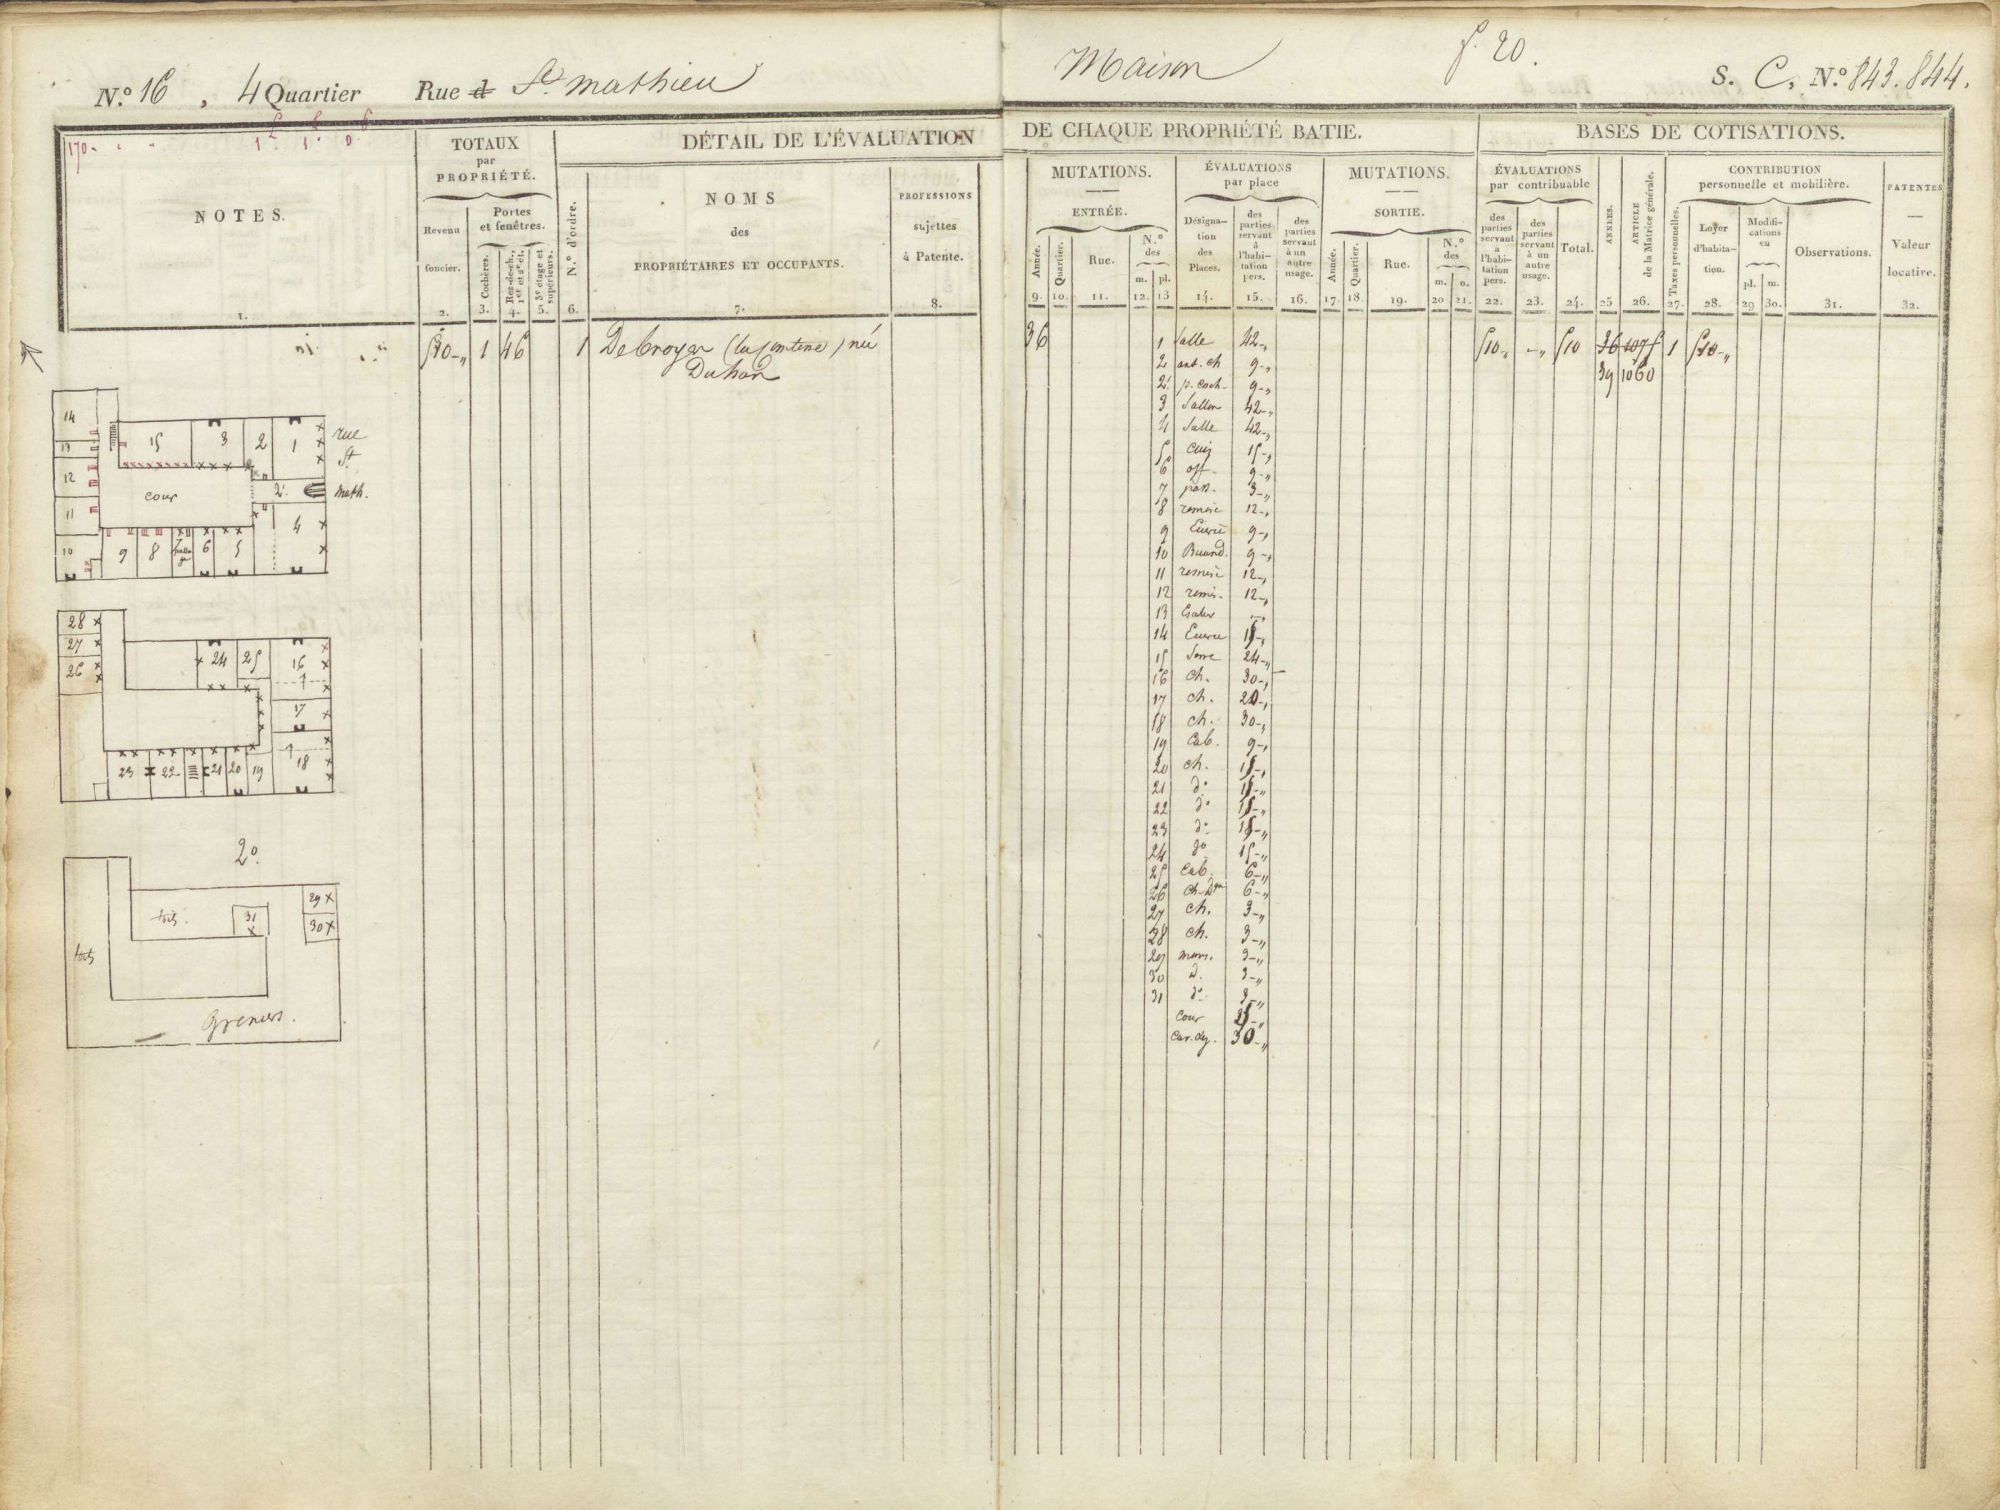 N.º 16, 4 Quartier Rue d St. Mathieu
Maison
f. 20.
S. C, N.º 843. 844.
170
NOTES.
1.
TOTAUX
par
PROPRIÉTÉ.
Revenu
foncier.
2.
Portes
et fenêtres.
Cochères.
3.
Rez-de-ch.,
1er et 2e ét.
4.
3e étage et
supérieurs.
5.
DÉTAIL DE L'ÉVALUATION
N.º d'ordre.
6.
NOMS
des
PROPRIÉTAIRES ET OCCUPANTS.
7.
PROFESSIONS
sujettes
à Patente.
8.
DE CHAQUE PROPRIÉTÉ BATIE.
MUTATIONS.
ENTRÉE.
Année.
9.
Quartier.
10.
Rue.
11.
N.º
des
m.
12.
pl.
13
ÉVALUATIONS
par place
Désigna-
tion
des
Places.
14.
des
parties
servant
à
l'habi-
tation
pers.
15.
des
parties
servant
à un
autre
usage.
16.
MUTATIONS.
SORTIE.
Année.
17.
Quartier.
18.
Rue.
19.
N.º
des
m.
20
o.
21.
BASES DE COTISATIONS.
ÉVALUATIONS
par contribuable
des
parties
servant
à
l'habi-
tation
pers.
22.
des
parties
servant
à un
autre
usage.
23.
Total.
24.
ANNÉES.
25
ARTICLE
de la Matrice générale.
26.
CONTRIBUTION
personnelle et mobilière.
Taxes personnelles.
27.
Loyer
d'habita-
tion.
28.
Modifi-
cations
en
pl.
29
m.
30.
Observations.
31.
PATENTES
Valeur
locative.
32.
510 1 46 1 Debroyer
Duhan
36
510 510 36 1075 1 510
39 1060
1 Salle 42
2 ant. ch 9
2' p. coch. 9
3 Sallon 42
4 Salle 42
5 cuis 15
6 off. 9
7 pass. 3
8 remise 12
9 Ecurie 9
10 Buand. 9
11 remise 12
12 remis. 12
13 Escalier
14 Ecurie 15
15 Serre 24
16 ch. 30
17 ch. 20
18 ch. 30
19 Cab. 9
20 ch. 15
21 do 15
22 do 15
23 do 15
24 do 15
25 Cab. 6
26 ch. Dom 6
27 ch. 3
28 ch. 3
29 mans. 3
30 d. 3
31 do 3
Cour 25
30
14 15 3 2 1 rue
13 St.
12 cour 2' math.
11 4
10 9 8 7 6 5
28
27
26 24 25 16
17
23 22 21 20 19 18
2º.
29
30
31
toits.
toits
Greniers.